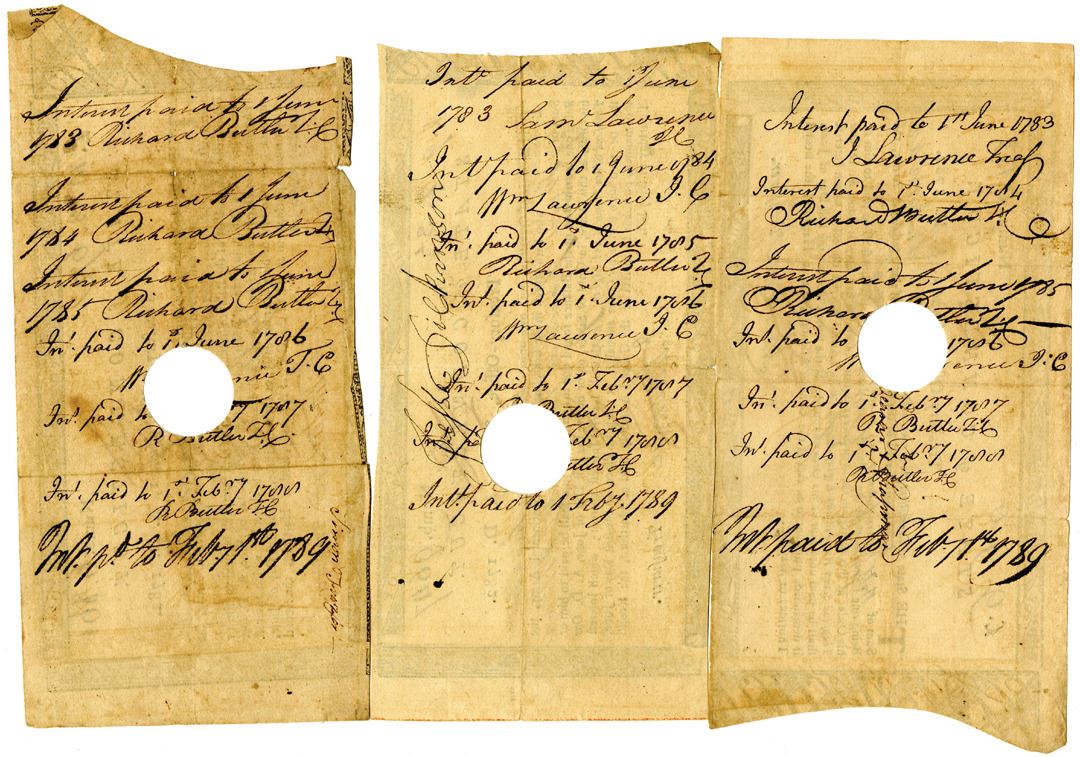 Interest paid to 1 June
1783 Richard Butler I.C
Interest paid to 1 June
1784 Richard Butler
Interest paid to 1 June
1785 Richard Butler
Int. paid to 1st June 1786
W I.C
Int. paid to 1787
R Butler I.C
Int. paid to 1st Feb.ry 1788
R Butler I.C
Int. pd. to Feb.y 1st 1789
Int. paid to 1 June
1783 Saml Lawrence
I.C
Int. paid to 1 June 1784
Wm Lawrence I.C
Int. paid to 1st June 1785
Richard Butler
Int. paid to 1st June 1786
Wm Lawrence I.C
Int. paid to 1st Feb.ry 1787
R Butler I.C
Int. Feb.ry 1788
Butler I.C
Int. paid to 1 Feby. 1789
Interest paid to 1st June 1783
J Lawrence Treas
Interest paid to 1st June 1784
Richard Butler I.C
Interest paid to 1 June 1785
Richard Butler
Int. paid to 1786
W I.C
Int. paid to 1st Feb.ry 1787
R Butler I.C
Int. paid to 1st Feb.ry 1788
R Butler I.C
Int. paid to Feb.y 1st 1789